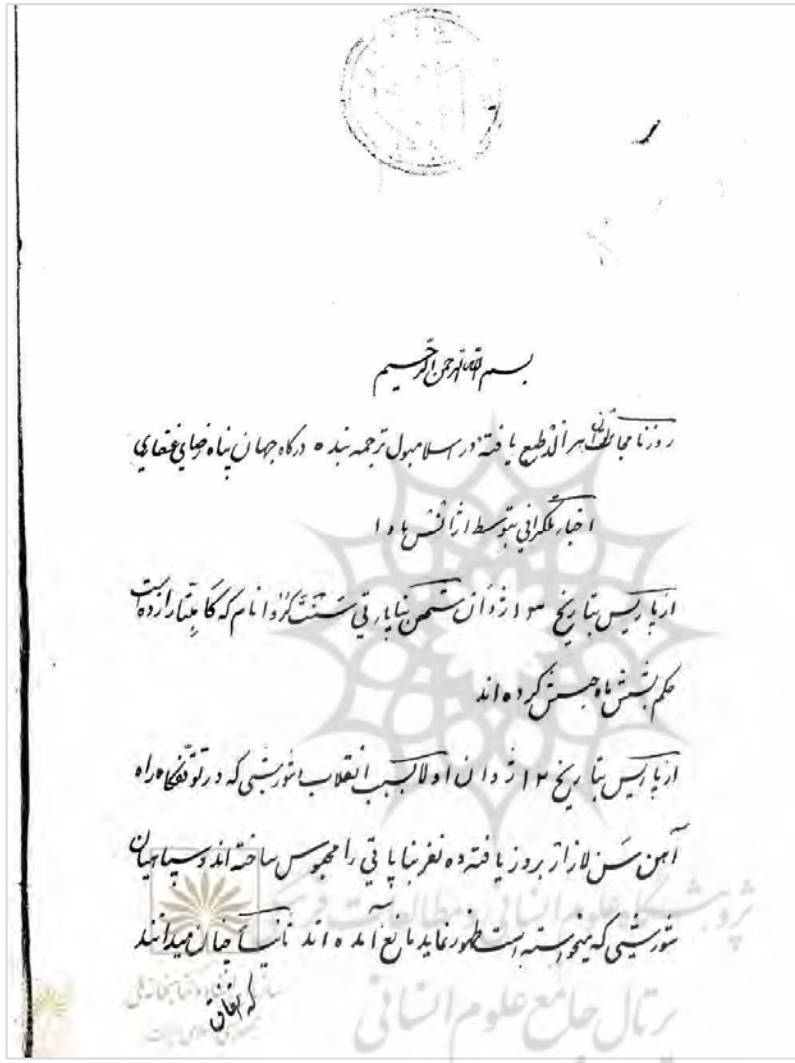 بسم الله الرحمن الرحیم
روزنامجات هرالد طبع یافته در اسلامبول ترجمه بنده درگاه جهان پناه رضای غفاری
اخبار تلگرافی بتوسط اژانس هاوا
از پاریس بتاریخ ۳ ژوان شخص بناپارتی که را زده است
حکم بشش ماه حبس کرده اند
از پاریس بتاریخ ۱۲ ژوان اولا بسبب انقلاب و شورشی که در توقفگاه راه
آهن سن لازار بروز یافته ده نفر بناپارتی را محبوس ساخته اند و سپاهیان
شورشی که میخواسته است ظهور نماید مانع آمده اند ثانیا چنان میدانند
که اتفاق
پژوهشگاه علوم انسانی و مطالعات فرهنگی
پرتال جامع علوم انسانی